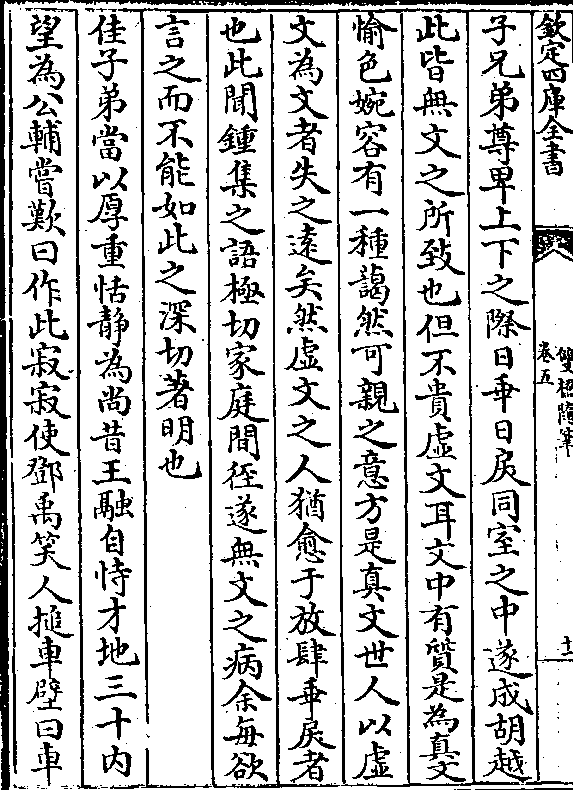 欽定四庫全書
雙橋隨筆
卷五
十一
子兄弟尊卑上下之際日乖日戾同室之中遂成胡越
此皆無文之所致也但不貴虛文耳文中有質是為真文
愉色婉容有一種藹然可親之意方是真文世人以虛
文為文者失之遠矣然虛文之人猶愈于放肆乖戾者
也此聞鍾集之語極切家庭間徑遂無文之病余每欲
言之而不能如此之深切著明也
佳子弟當以厚重恬靜為尚昔王融自恃才地三十內
望為公輔嘗歎曰作此寂寂使鄧禹笑人搥車壁曰車